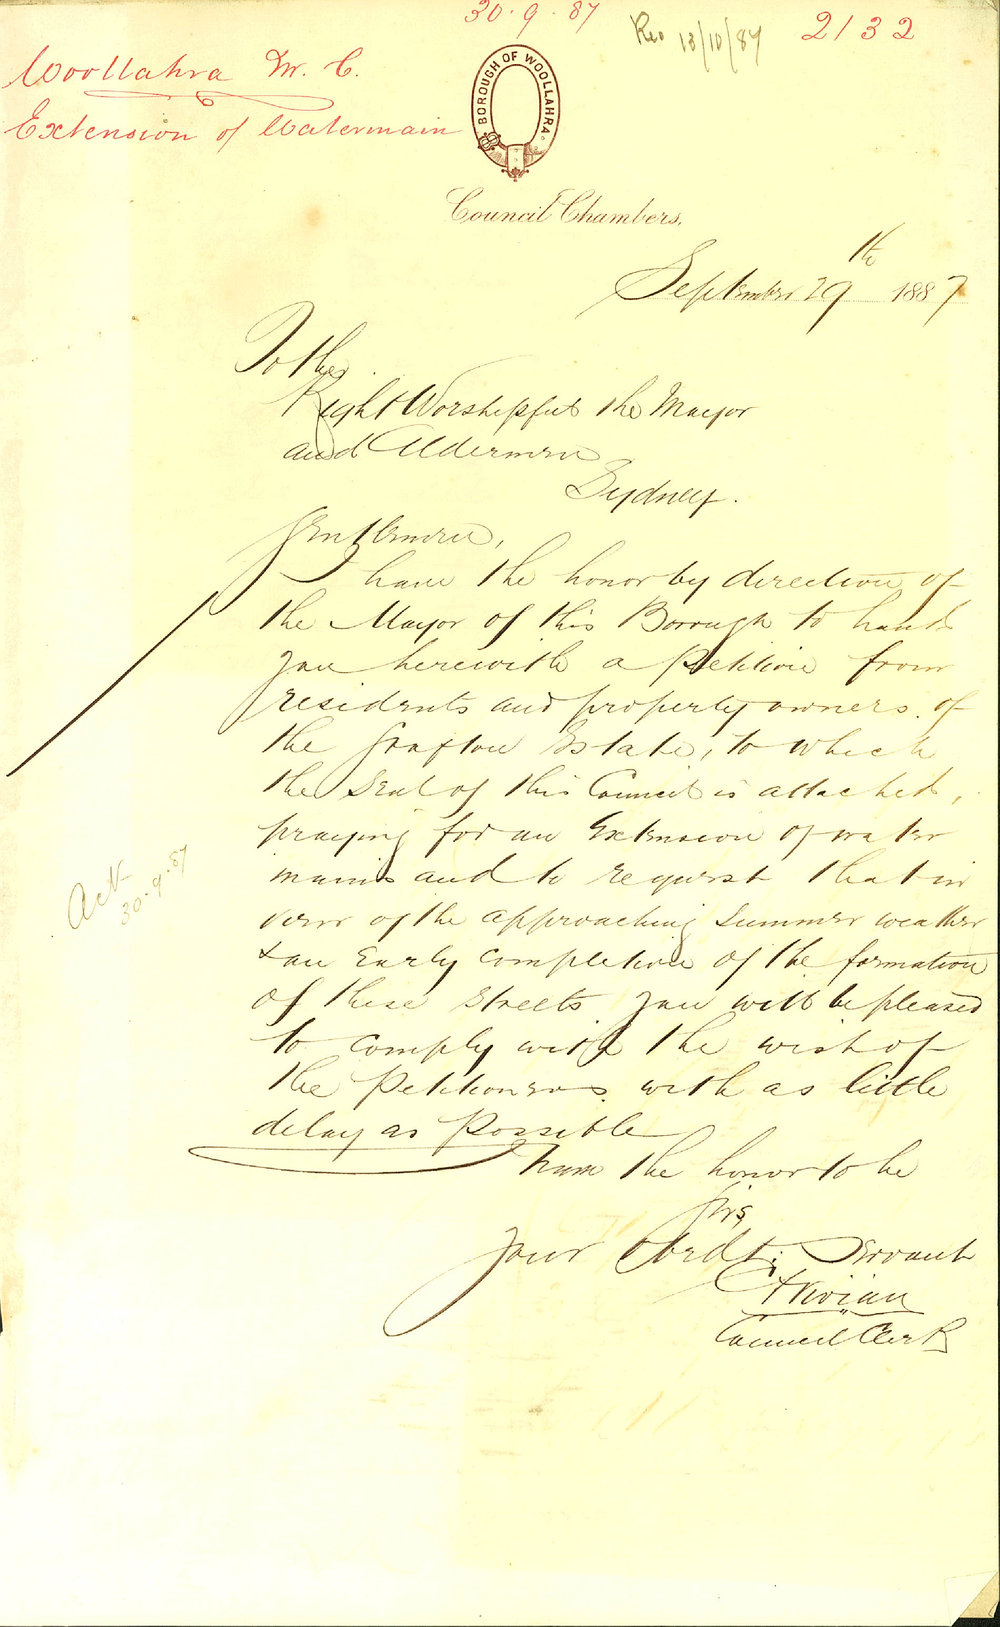 30.9.87
Rec 13/10/87
2132
Woollahra M. C.
Extension of Watermain
BOROUGH OF WOOLLAHRA.
Council Chambers,
September 29th 1887
To the
Right Worshipful the Mayor
and Aldermen
Sydney.
Gentlemen,
I have the honor by direction of
the Mayor of this Borough to hand
you herewith a Petition from
residents and property owners of
the Grafton Estate, to which
the Seal of this Council is attached,
praying for an Extension of water
mains and to request that in
view of the approaching Summer weather
& an Early completion of the formation
of these Streets you will be pleased
to comply with the wish of
the Petitioners with as little
delay as Possible
I have the honor to be
Sirs,
Your Obedt. Servant
Vivian
Council Clerk
Ack
30.9.87